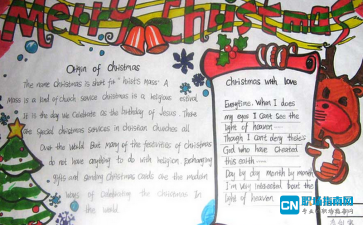 Merry Christmas
Origin of Christmas
The name Christmas is short for "Christ's Mass". A
Mass is a kind of church service Christmas is a religious festival
It is the day we celebrate as the birthday of Jesus. There
are special Christmas services in Christian churches all
over the world. But many of the festivities of Christmas
do not have anything to do wish religion. Exchanging
gifts and sending Christmas cards are the modern
ways of celebrating the Christmas in
the world.
Christmas with love
Everytime. When I does
my eyes I can't see the
light of heaven
Though I can't deny there's
God who have Created
this earth
Day by day month by month
I'm very interested bout the
light of heaven
CN 职场指南网